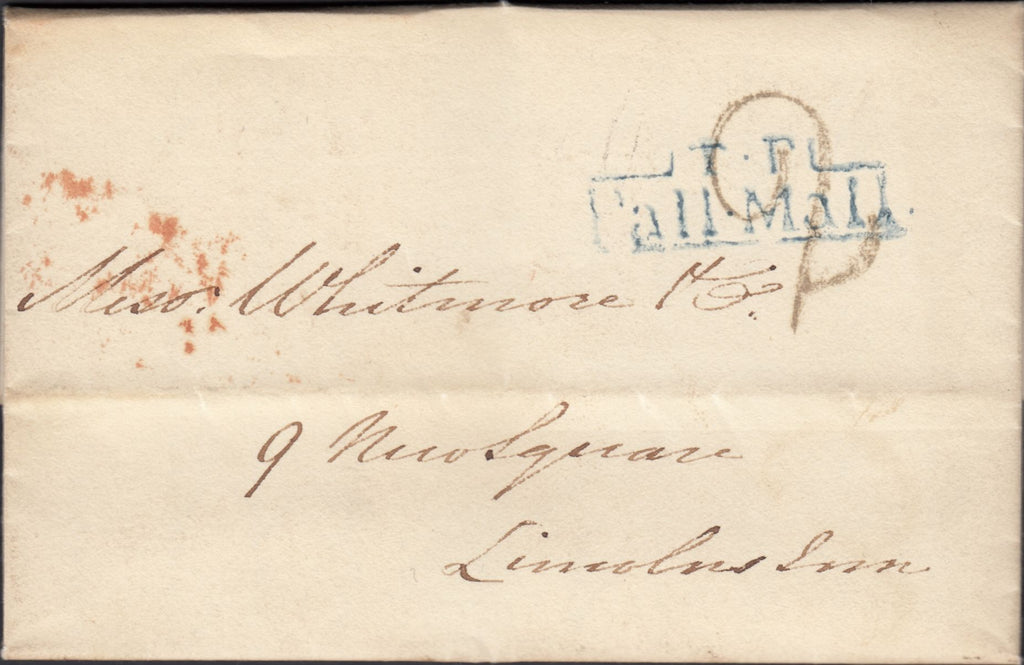 T.P
Pall.Mall.
2
Messrs: Whitmore & Co.
9 New Square
Lincolns Inn